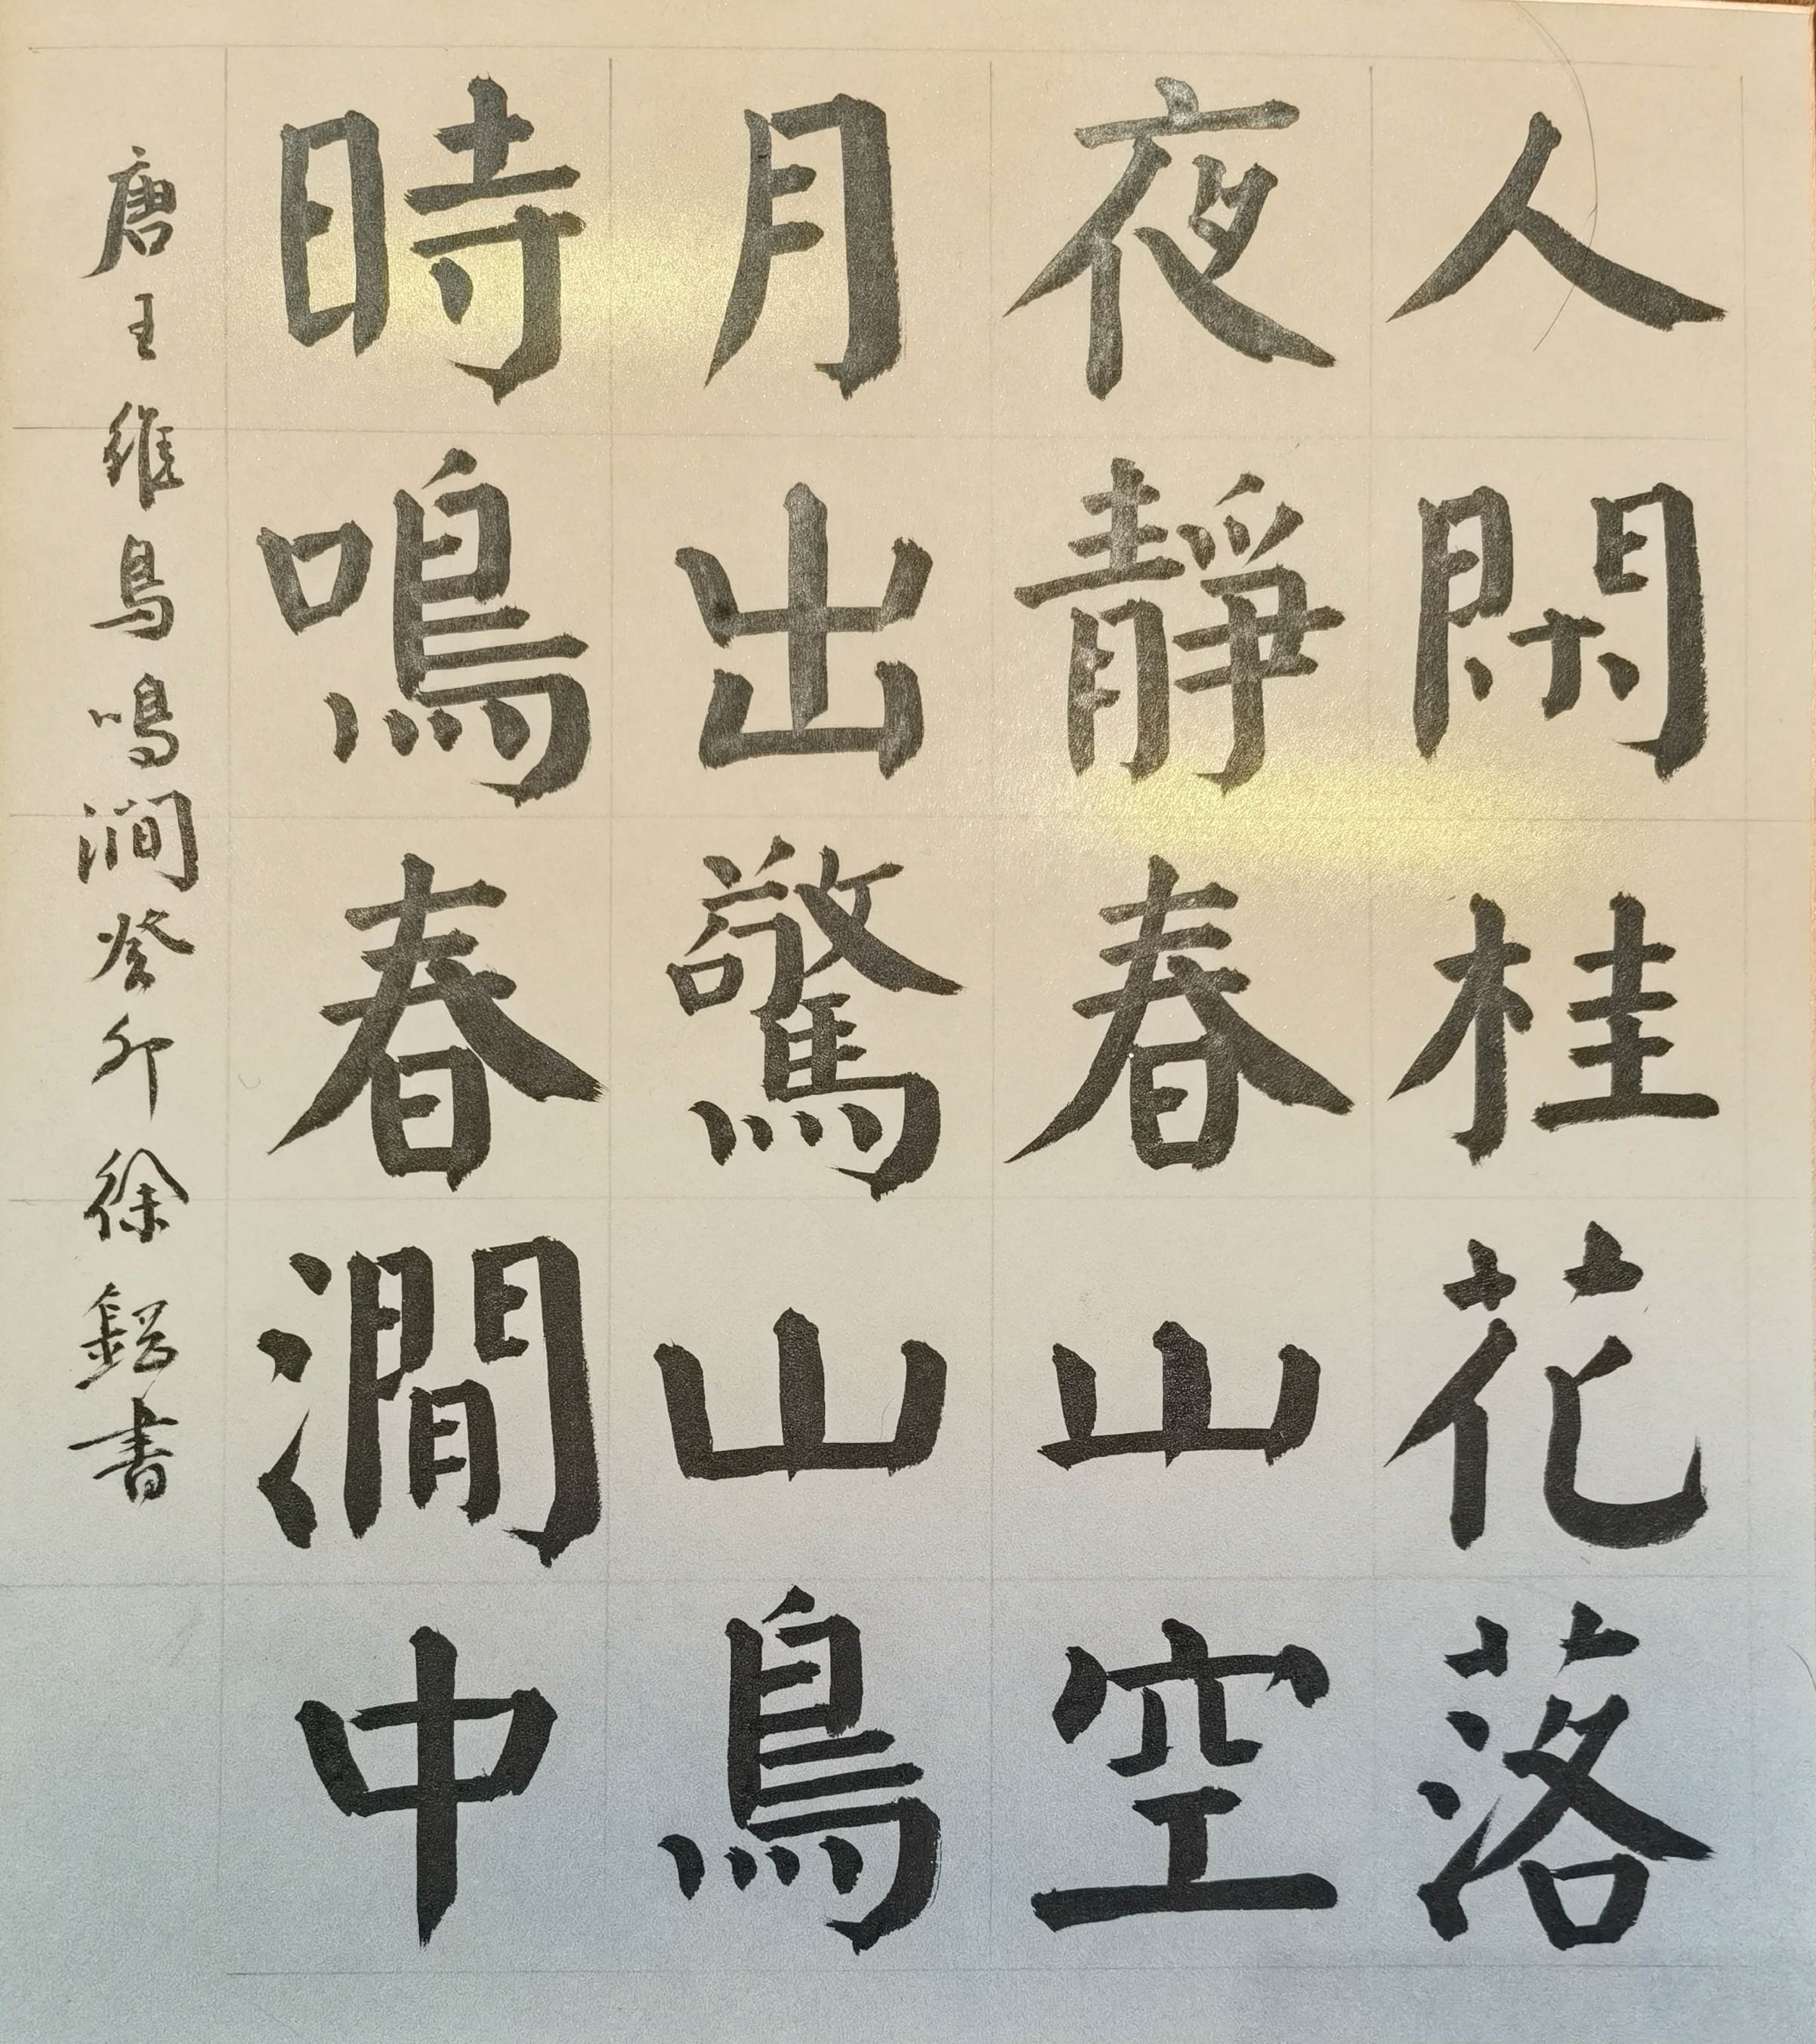 人閑桂花落
夜靜春山空
月出驚山鳥
時鳴春澗中
唐王維鳥鳴澗癸卯徐書